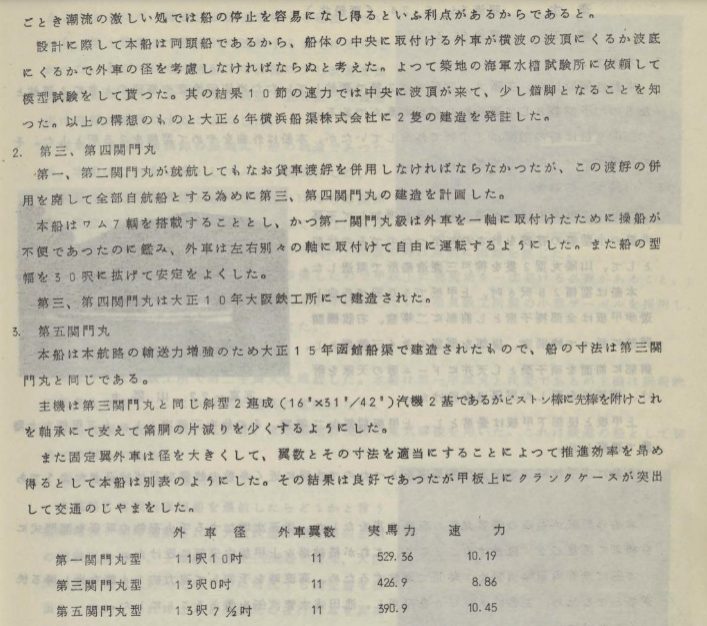 ごとき潮流の激しい処では船の停止を容易になし得るといふ利点があるからであると。
設計に際して本船は両頭船であるから、船体の中央に取付ける外車が横波の波頂にくるか波底
にくるかで外車の径を考慮しなければならぬと考えた。よつて築地の海軍水槽試験所に依頼して
模型試験をして貰つた。其の結果10節の速力では中央に波頂が来て、少し船脚となることを知
つた。以上の構想のものと大正6年横浜船渠株式会社に2隻の建造を発註した。
2. 第三、第四関門丸
第一、第二関門丸が就航してもなお貨車渡艀を併用しなければならなかつたが、この渡艀の併
用を廃して全部自航船とする為めに第三、第四関門丸の建造を計画した。
本船はワム7輌を搭載することとし、かつ第一関門丸級は外車を一軸に取付けたために操船が
不便であつたのに鑑み、外車は左右別々の軸に取付けて自由に運転するようにした。また船の型
幅を30呎に拡げて安定をよくした。
第三、第四関門丸は大正10年大阪鉄工所にて建造された。
3. 第五関門丸
本船は本航路の輸送力増強のため大正15年函館船渠で建造されたもので、船の寸法は第三関
門丸と同じである。
主機は第三関門丸と同じ斜型2連成(16"×31"/42")汽機2基であるがピストン棒に先棒を附けこれ
を軸承にて支えて筒胴の片減りを少くするようにした。
また固定翼外車は径を大きくして、翼数とその寸法を適当にすることによつて推進効率を昂め
得るとして本船は別表のようにした。その結果は良好であつたが甲板上にクランクケースが突出
して交通のじやまをした。
外車径 外車翼数 実馬力 速力
第一関門丸型 11呎10吋 11 529.36 10.19
第三関門丸型 13呎0吋 11 426.9 8.86
第五関門丸型 13呎7½吋 11 390.9 10.45